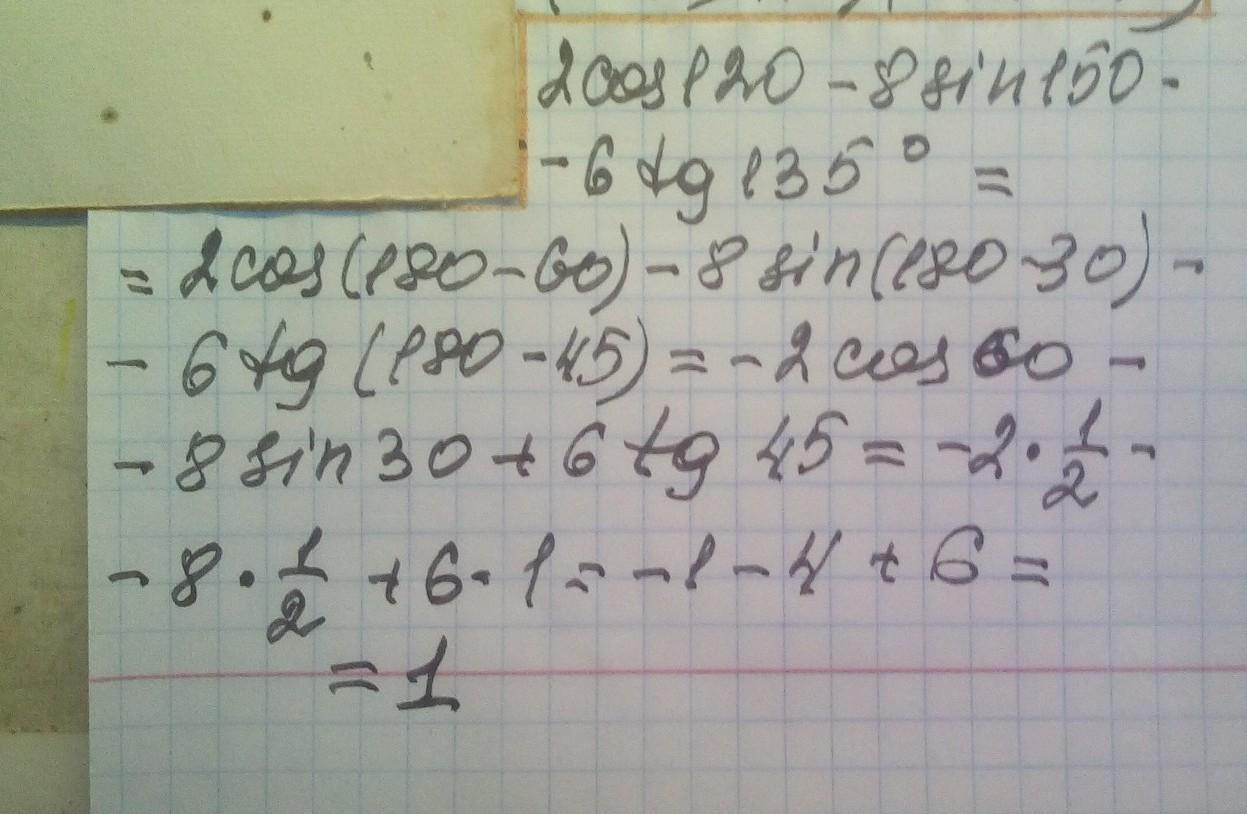 2cos120 - 8sin150 -
- 6 tg 135° =
= 2cos(180-60) - 8 sin(180-30) -
- 6 tg (180-45) = -2 cos 60 -
- 8 sin 30 + 6 tg 45 = -2·1/2 -
- 8·1/2 + 6·1 = -1 - 4 + 6 =
= 1